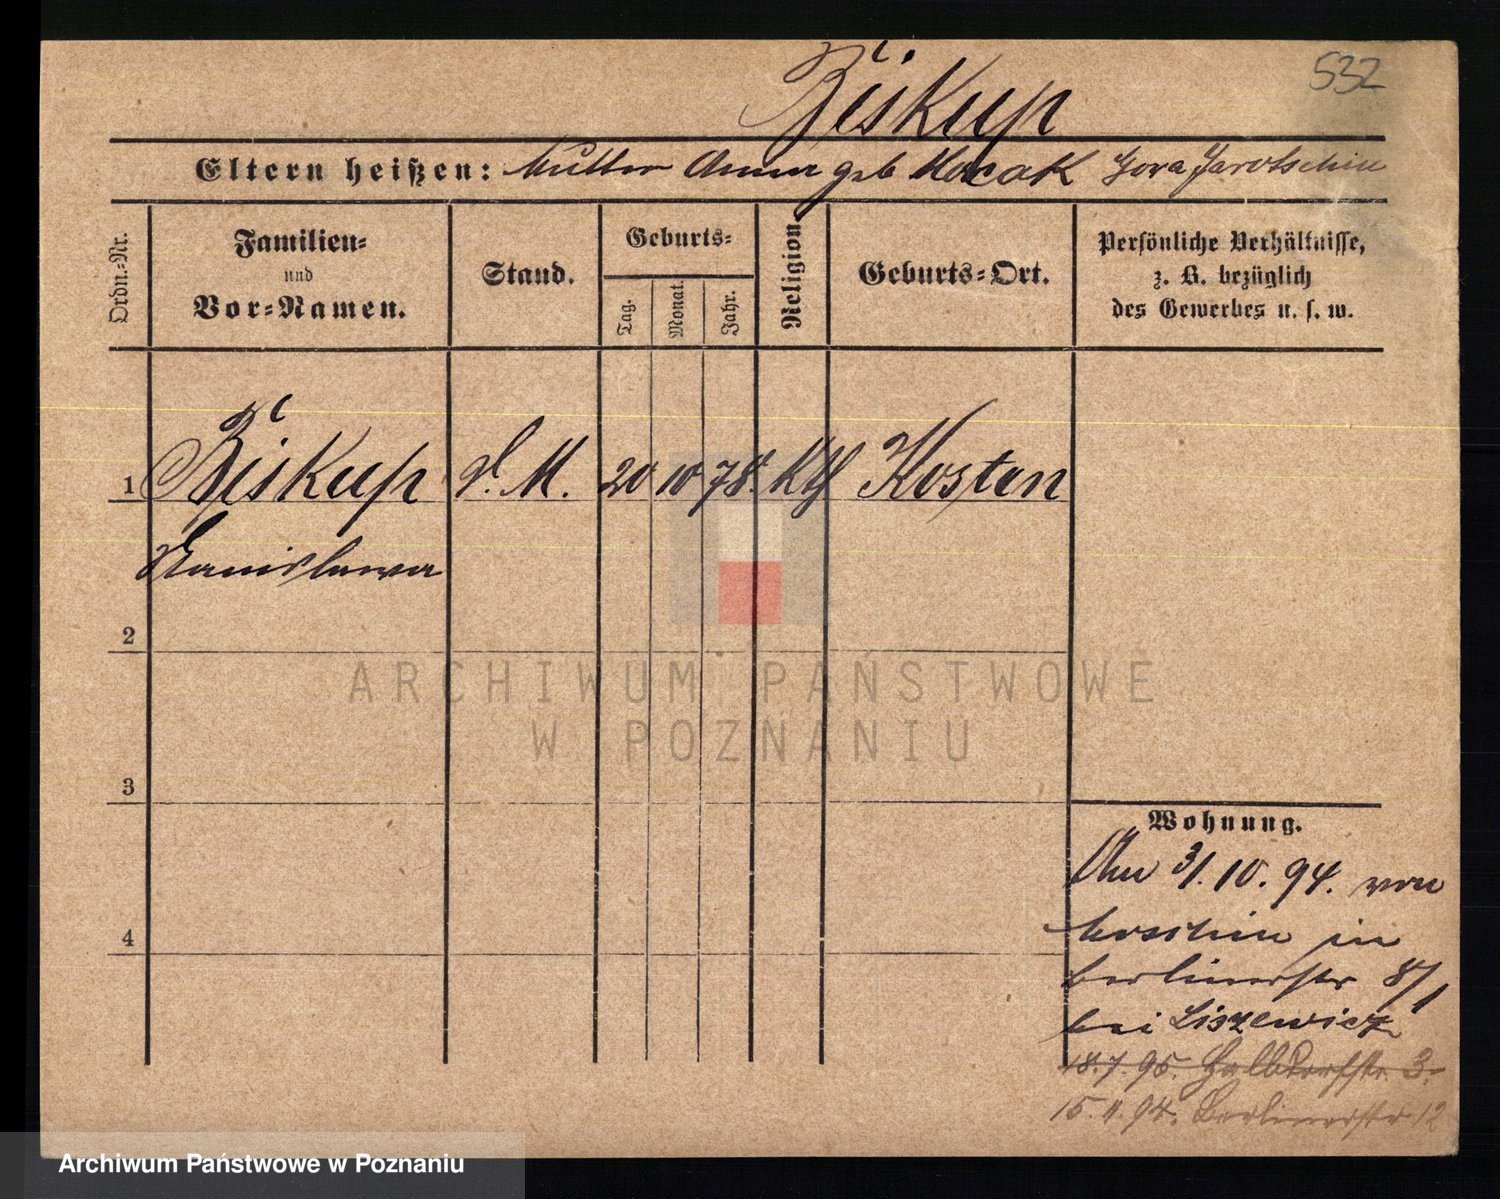 532
Biskup
Eltern heißen: Mutter Anna geb Kocak Gora Jarotschin
Ordn.=Nr.
Familien=
und
Vor=Namen.
Stand.
Geburts=
Tag.
Monat.
Jahr.
Religion.
Geburts=Ort.
Persönliche Verhältnisse,
z. B. bezüglich
des Gewerbes u. s. w.
1 Biskup d. M. 20 10 78. Kth Kosten
Stanislawa
2
3
4
Wohnung.
Am 3/10. 94. von
Moschin in
Berlinerstr 8/1
bei Liszewicz
18.7.95. Halbdorfstr. 3.
15.11.94. Berlinerstr 12
ARCHIWUM PAŃSTWOWE
W POZNANIU
Archiwum Państwowe w Poznaniu